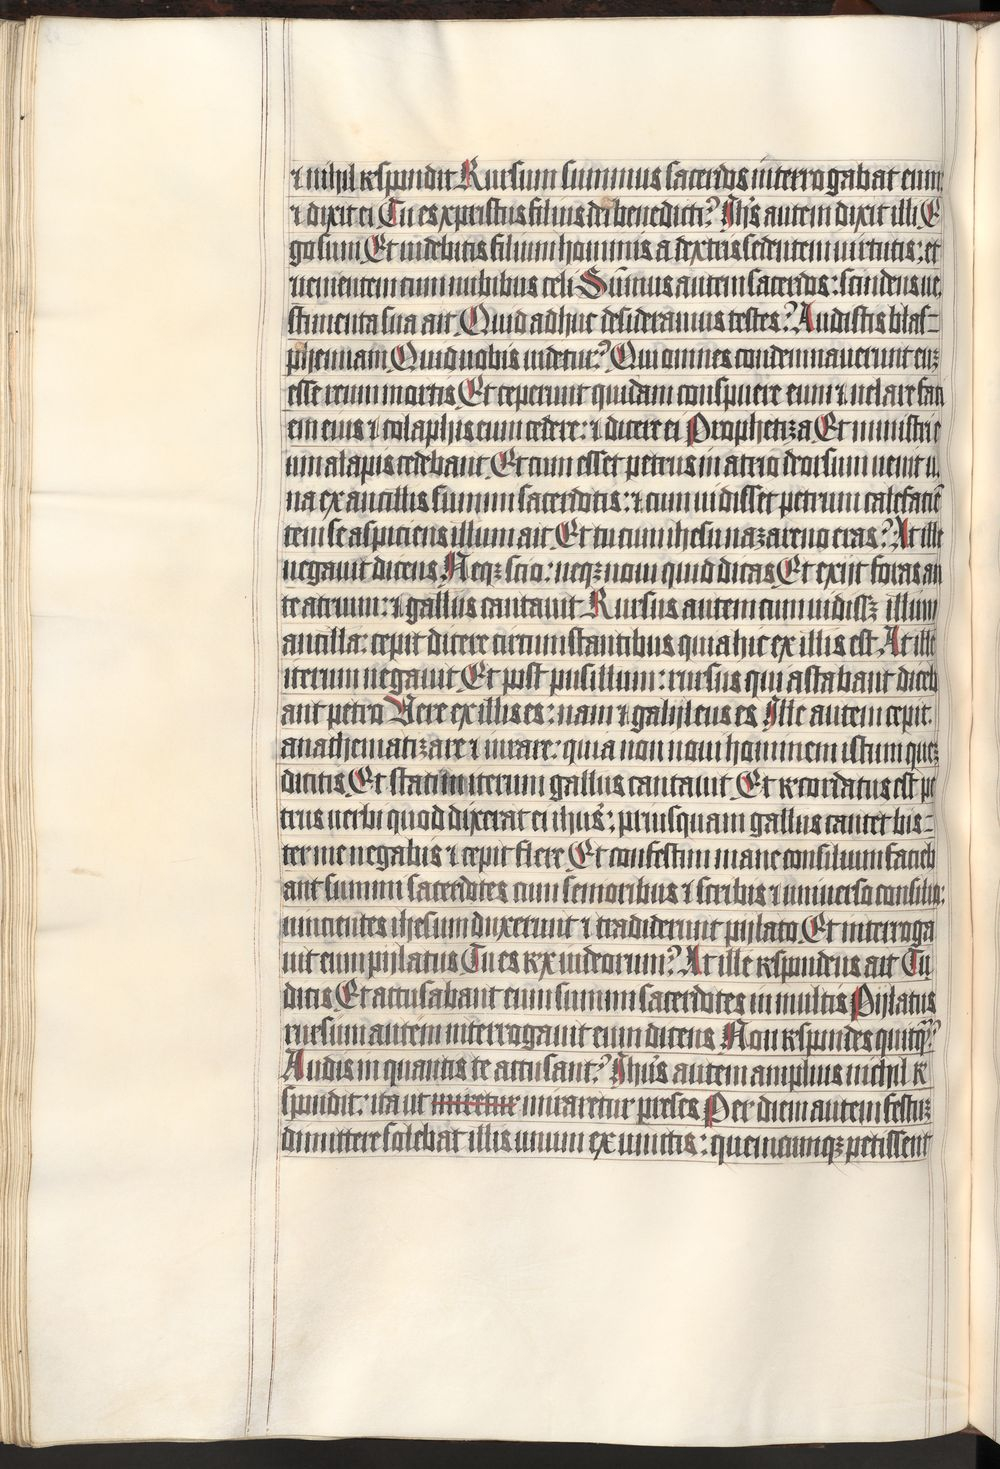 ⁊ nihil respondit Rursum summus sacerdos interrogabat eum:
⁊ dixit ei Tu es xpristus filius dei benedicti? Ihs autem dixit illi E
go sum Et uidebitis filium hominis a dextris sedentem uirtutis: et
uenientem cum nubibus celi Summus autem sacerdos: scindens ue
stimenta sua ait Quid adhuc desideramus testes? Audistis blas-
phemiam Quid uobis uidetur? Qui omnes condemnauerunt euz
esse reum mortis Et ceperunt quidam conspuere eum ⁊ uelare faci
em eius ⁊ colaphis eum cedere: ⁊ dicere ei Prophetiza Et ministri e
um alapis cedebant Et cum esset petrus in atrio deorsum uenit u
na ex ancillis summi sacerdotis: ⁊ cum uidisset petrum calefacie
tem se aspiciens illum ait Et tu cum ihesu nazareno eras? At ille
negauit dicens Neqz scio: neqz noui quid dicas Et exijt foras an
te atrium: ⁊ gallus cantauit Rursus autem cum uidissz illum
ancilla: cepit dicere circumstantibus quia hic ex illis est At ille
iterum negauit Et post pusillum: rursus qui astabant diceb
ant petro Uere ex illis es: nam ⁊ galyleus es Ille autem cepit
anathematizare ⁊ iurare: quia non noui hominem istum quez
dicitis Et statim iterum gallus cantauit Et recordatus est pe
trus uerbi quod dixerat ei ihus: priusquam gallus cantet bis-
ter me negabis ⁊ cepit flere Et confestim mane consilium facieb
ant summi sacerdotes cum senioribus ⁊ scribis ⁊ uniuerso consilio:
uincientes ihesum duxerunt ⁊ tradiderunt pylato Et interroga
uit eum pylatus Tu es rex iudeorum? At ille respondens ait Tu
dicis Et accusabant eum summi sacerdotes in multis Pylatus
rursum autem interrogauit eum dicens Non respondes quicq?
Audis in quantis te accusant? Ihus autem amplius nichil re
spondit: ita ut miretur miraretur preses Per diem autem festuz
dimittere solebat illis unum ex uinctis: quemcumqz petissent